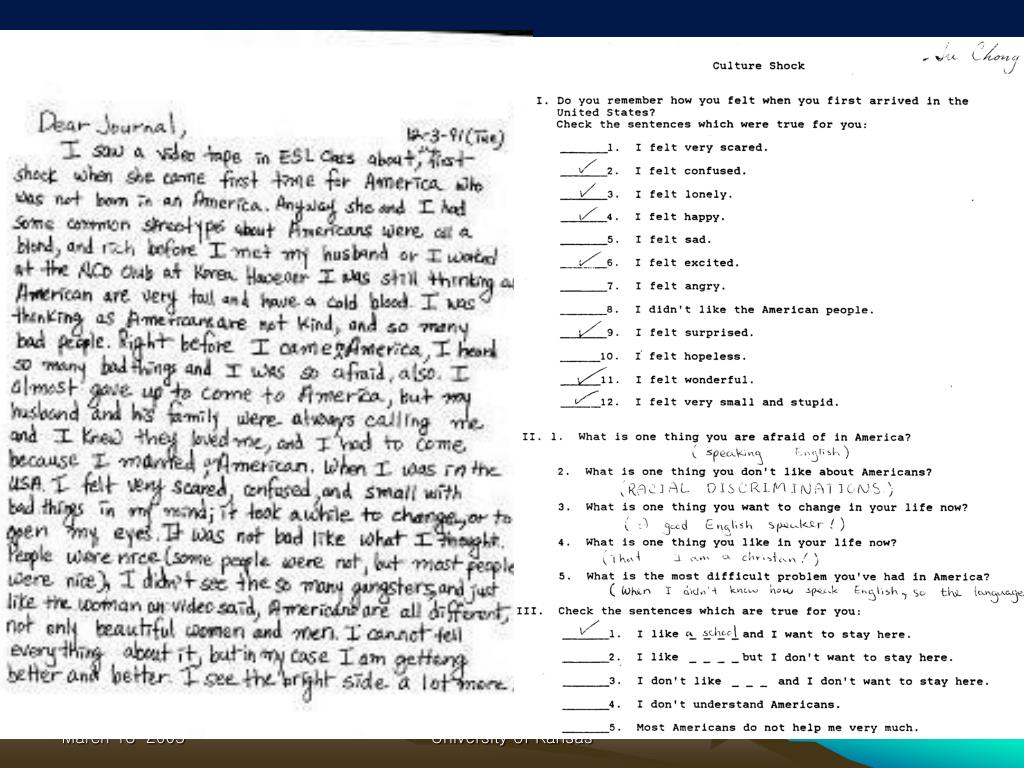 Dear Journal,
12-3-91 (Tue)
I saw a video tape in ESL class about, "first
shock when she came first time for America who
was not born in an America. Anyway she and I had
some common streotype about Americans were all a
blond, and rich before I met my husband or I worked
at the NCO club at Korea. However I was still thinking
American are very tall and have a cold blood. I was
thinking as Americans are not kind, and so many
bad people. Right before I came America, I heard
so many bad things and I was so afraid, also. I
almost gave up to come to America, but my
husband and his family were always calling me
and I knew they loved me, and I had to come
because I married American. When I was in the
USA. I felt very scared, confused, and small with
bad things in my mind; it took awhile to change, or to
open my eyes. It was not bad like what I thought.
People were nice (some people were not, but most people
were nice), I didn't see the so many gangsters, and just
like the woman on video said, Americans are all different,
not only beautiful women and men. I cannot tell
everything about it, but in my case I am getting
better and better. I see the bright side a lot more.
Chong
Culture Shock
I. Do you remember how you felt when you first arrived in the
United States?
Check the sentences which were true for you:
______1. I felt very scared.
___✓___2. I felt confused.
___✓___3. I felt lonely.
___✓___4. I felt happy.
______5. I felt sad.
___✓___6. I felt excited.
______7. I felt angry.
______8. I didn't like the American people.
___✓___9. I felt surprised.
______10. I felt hopeless.
___✓___11. I felt wonderful.
___✓___12. I felt very small and stupid.
II. 1. What is one thing you are afraid of in America?
(speaking English)
2. What is one thing you don't like about Americans?
(RACIAL DISCRIMINATIONS.)
3. What is one thing you want to change in your life now?
(:) good English speaker!)
4. What is one thing you like in your life now?
(That I am a christan!)
5. What is the most difficult problem you've had in America?
(When I didn't know how speak English, so the language
III. Check the sentences which are true for you:
___✓___1. I like a school and I want to stay here.
______2. I like _ _ _ _ but I don't want to stay here.
______3. I don't like _ _ _ and I don't want to stay here.
______4. I don't understand Americans.
______5. Most Americans do not help me very much.
University of Kansas